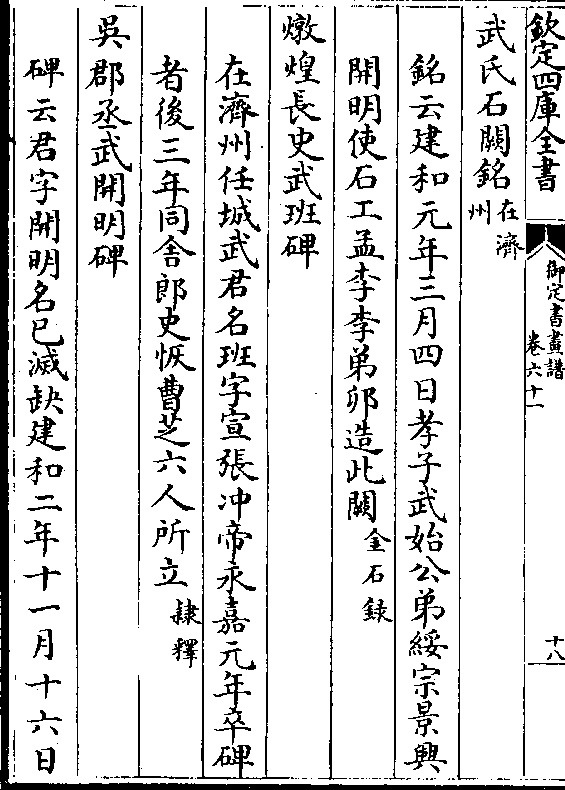 欽定四庫全書
御定書畫譜
卷六十一
十八
武氏石闕銘在濟州
銘云建和元年三月四日孝子武始公弟綏宗景興
開明使石工孟李李弟卯造此闕金石録
燉煌長史武班碑
在濟州任城武君名班字宣張冲帝永嘉元年卒碑
者後三年同舍郎史恢曹芝六人所立隷釋
吳郡丞武開明碑
碑云君字開明名已滅缺建和二年十一月十六日